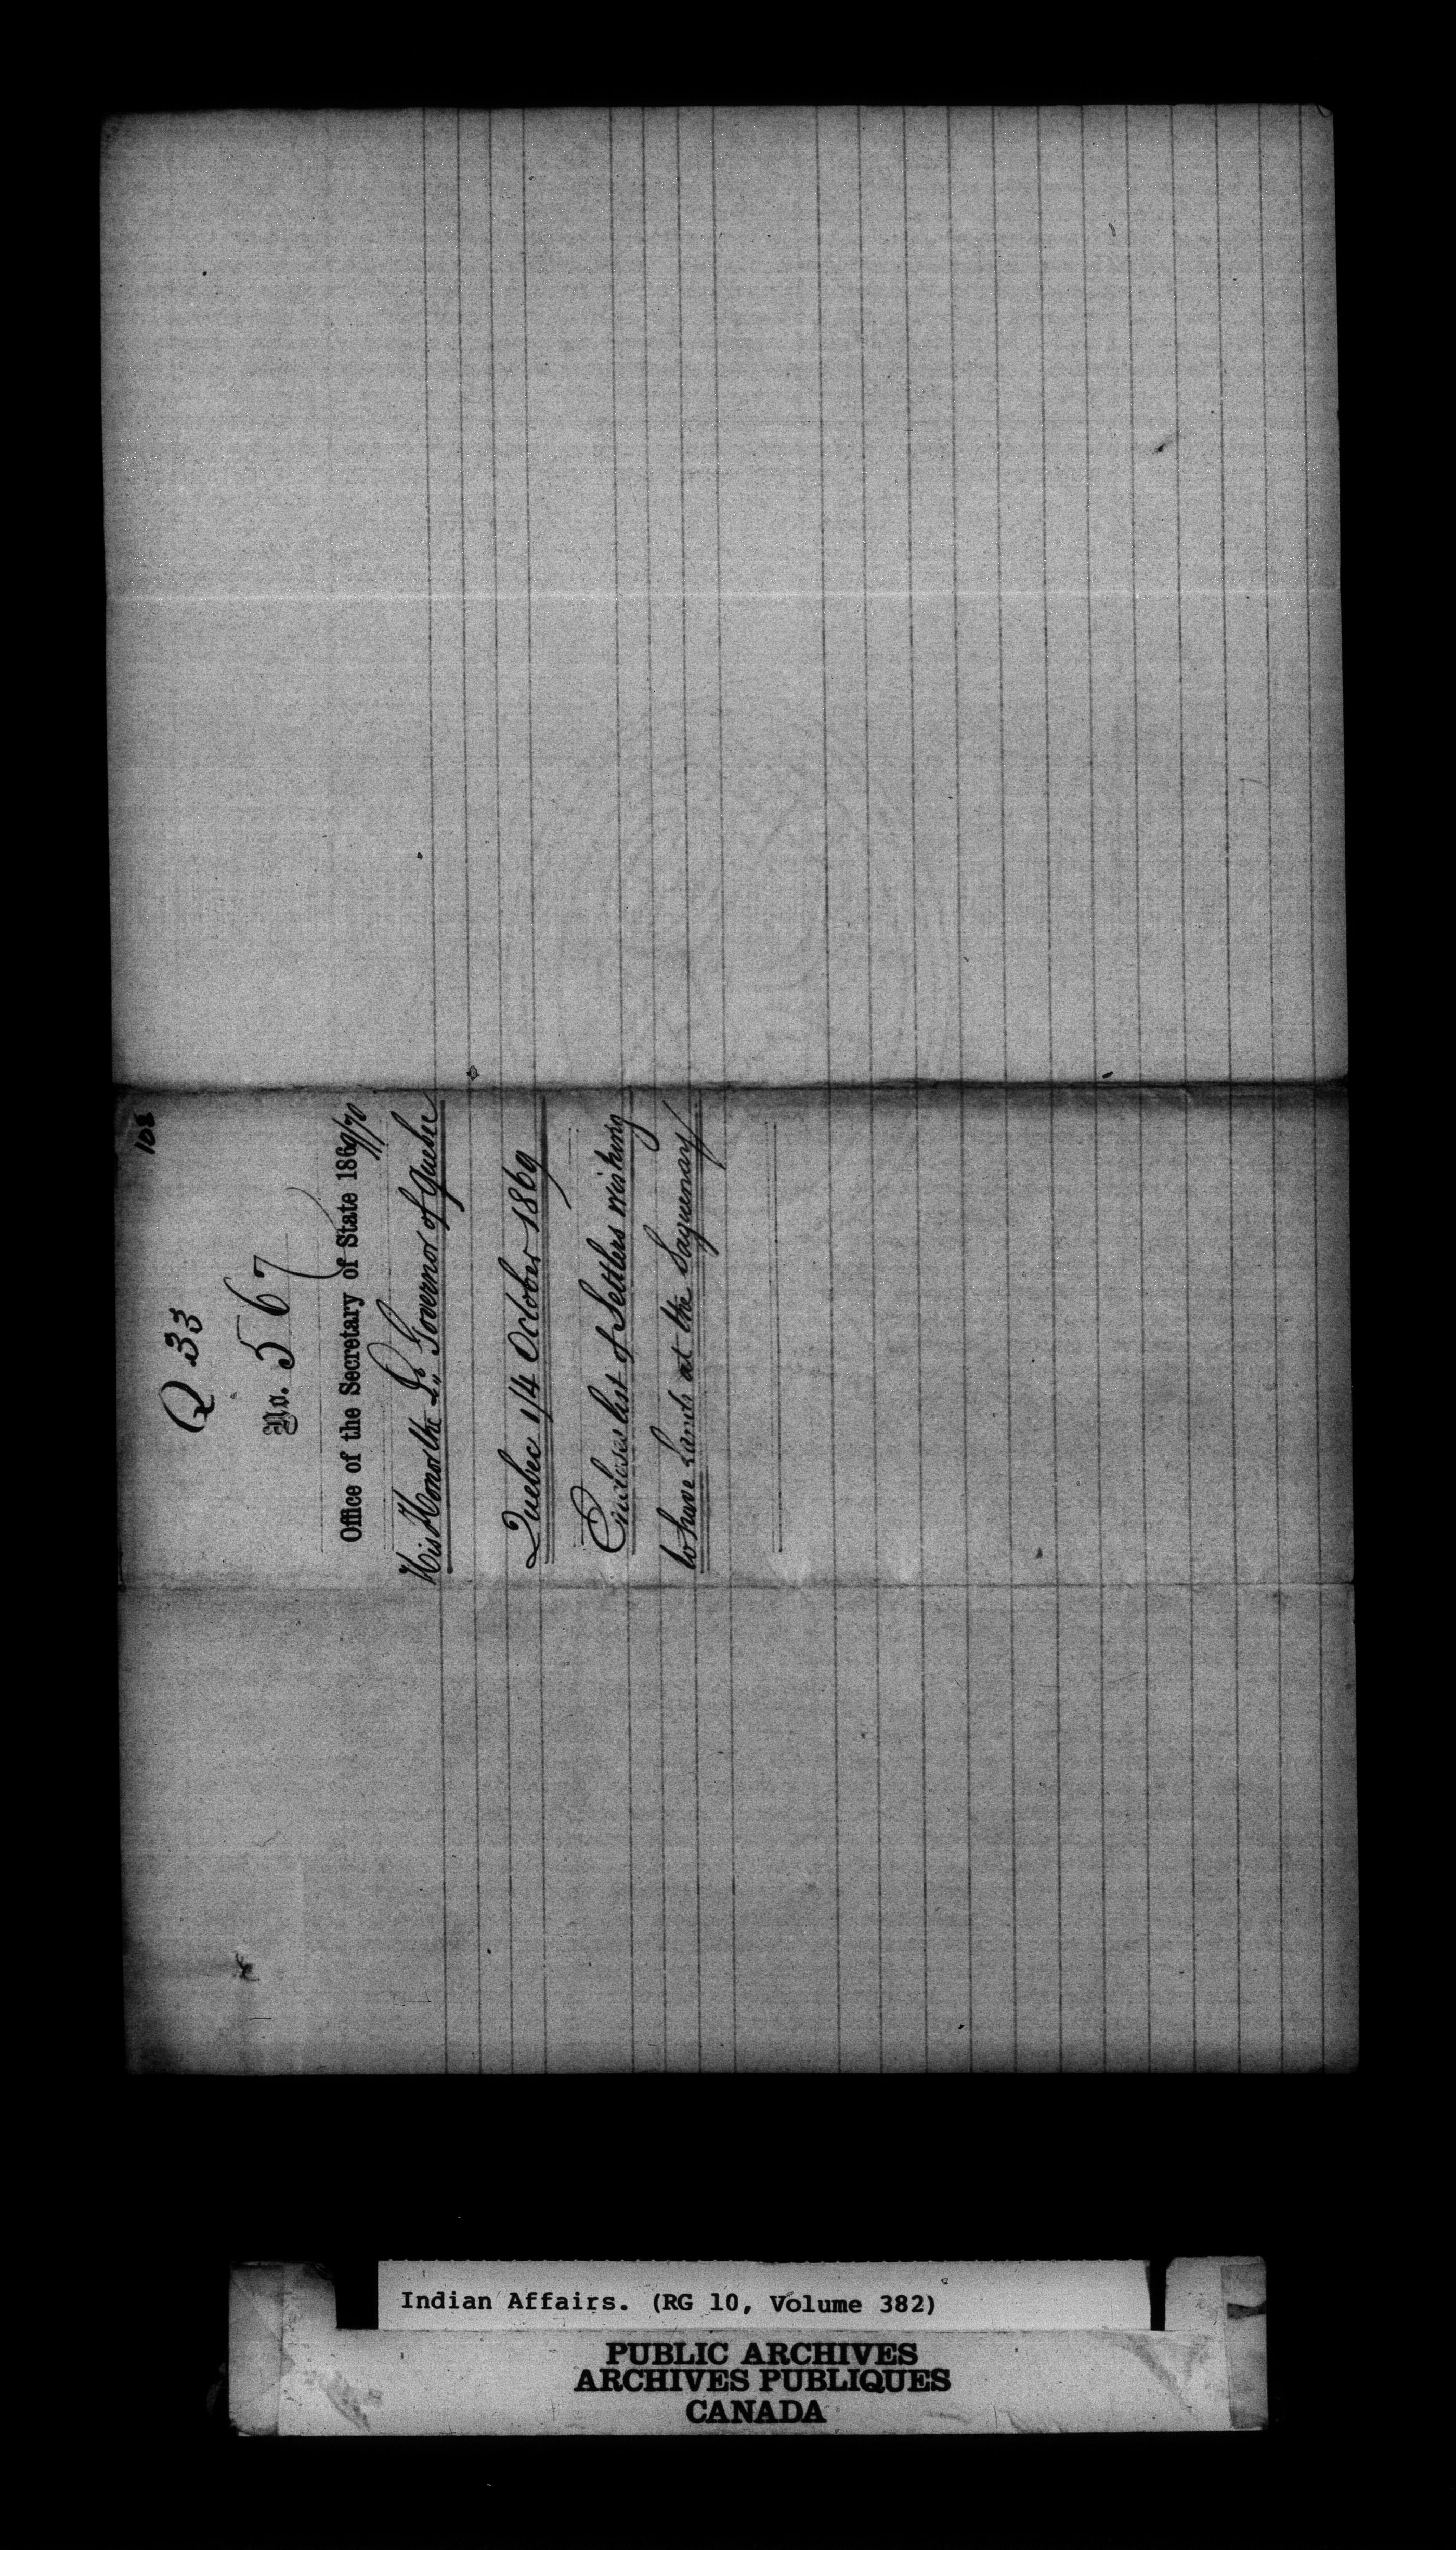 108
Q 33
No. 567
Office of the Secretary of State 1869/70
His Honor the Lt Governor of Quebec
Quebec 14 October 1869
Encloses list of Settlers wishing
to have Lands at the Saguenay
Indian Affairs. (RG 10, Volume 382)
PUBLIC ARCHIVES
ARCHIVES PUBLIQUES
CANADA